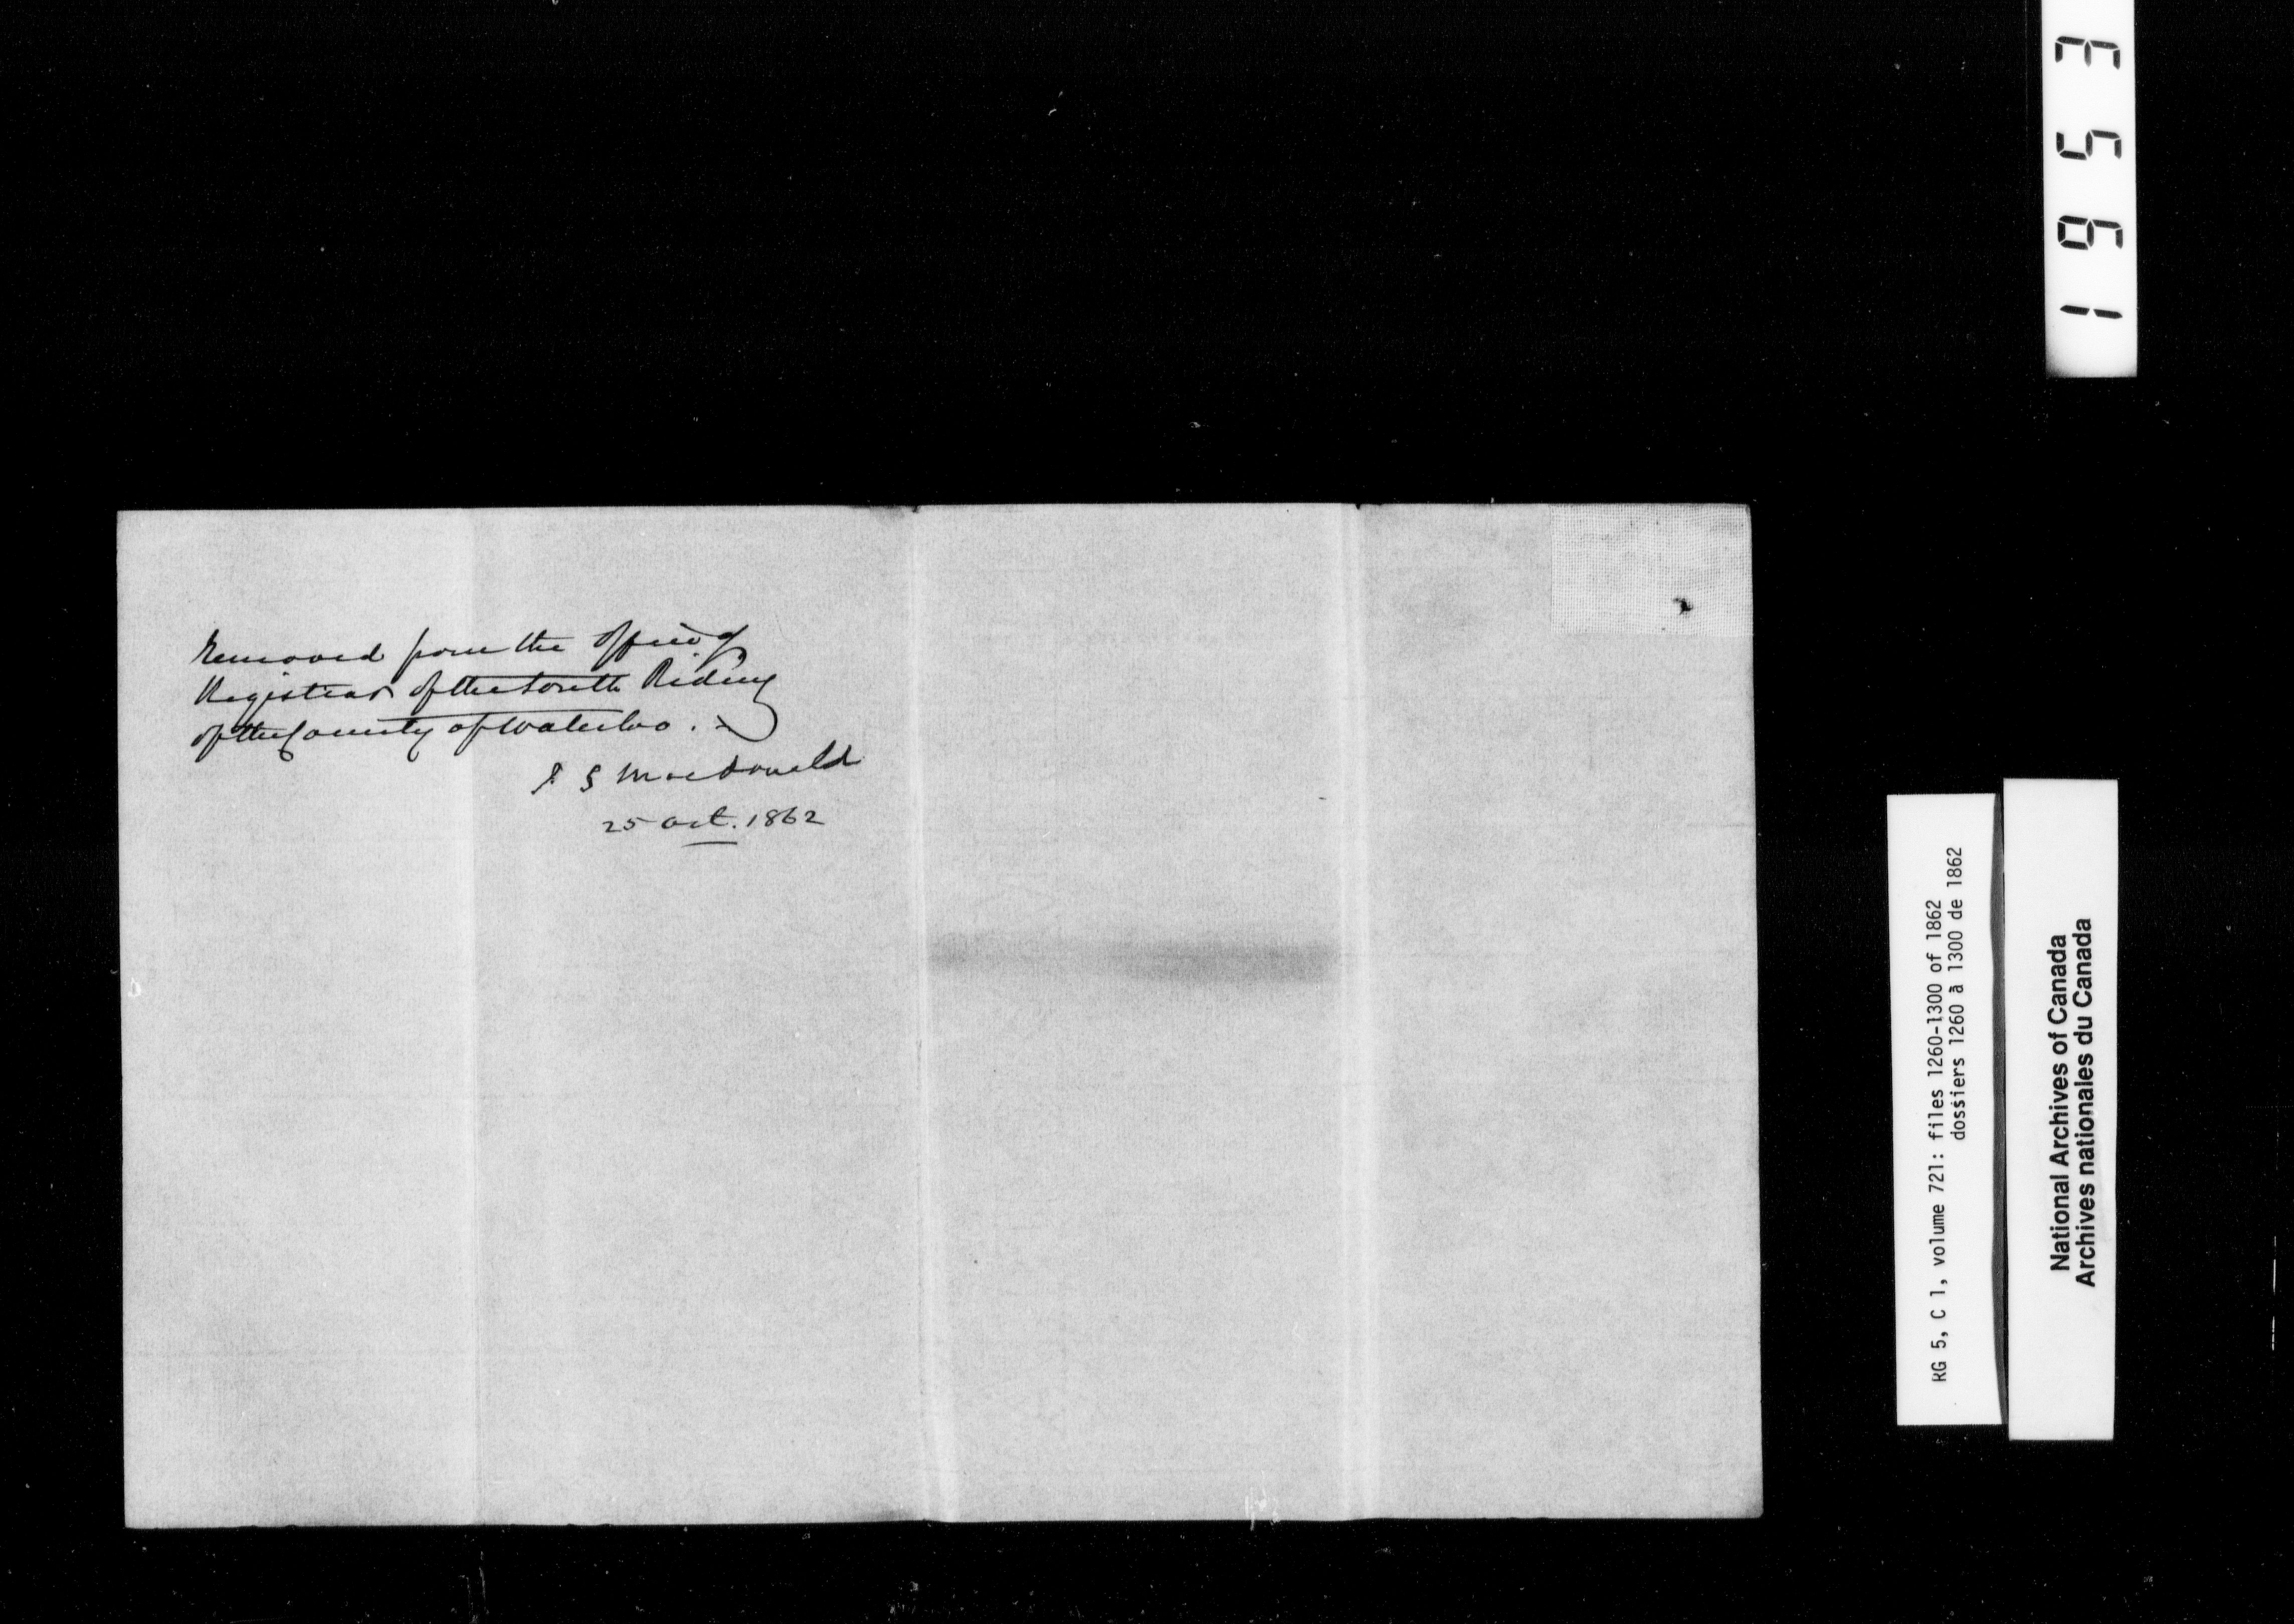 removed from the Office of
Registrar of the South Riding
of the County of Waterloo.
J S Macdonald
25 Oct. 1862
1953
RG 5, C 1, volume 721: files 1260-1300 of 1862
dossiers 1260 à 1300 de 1862
National Archives of Canada
Archives nationales du Canada